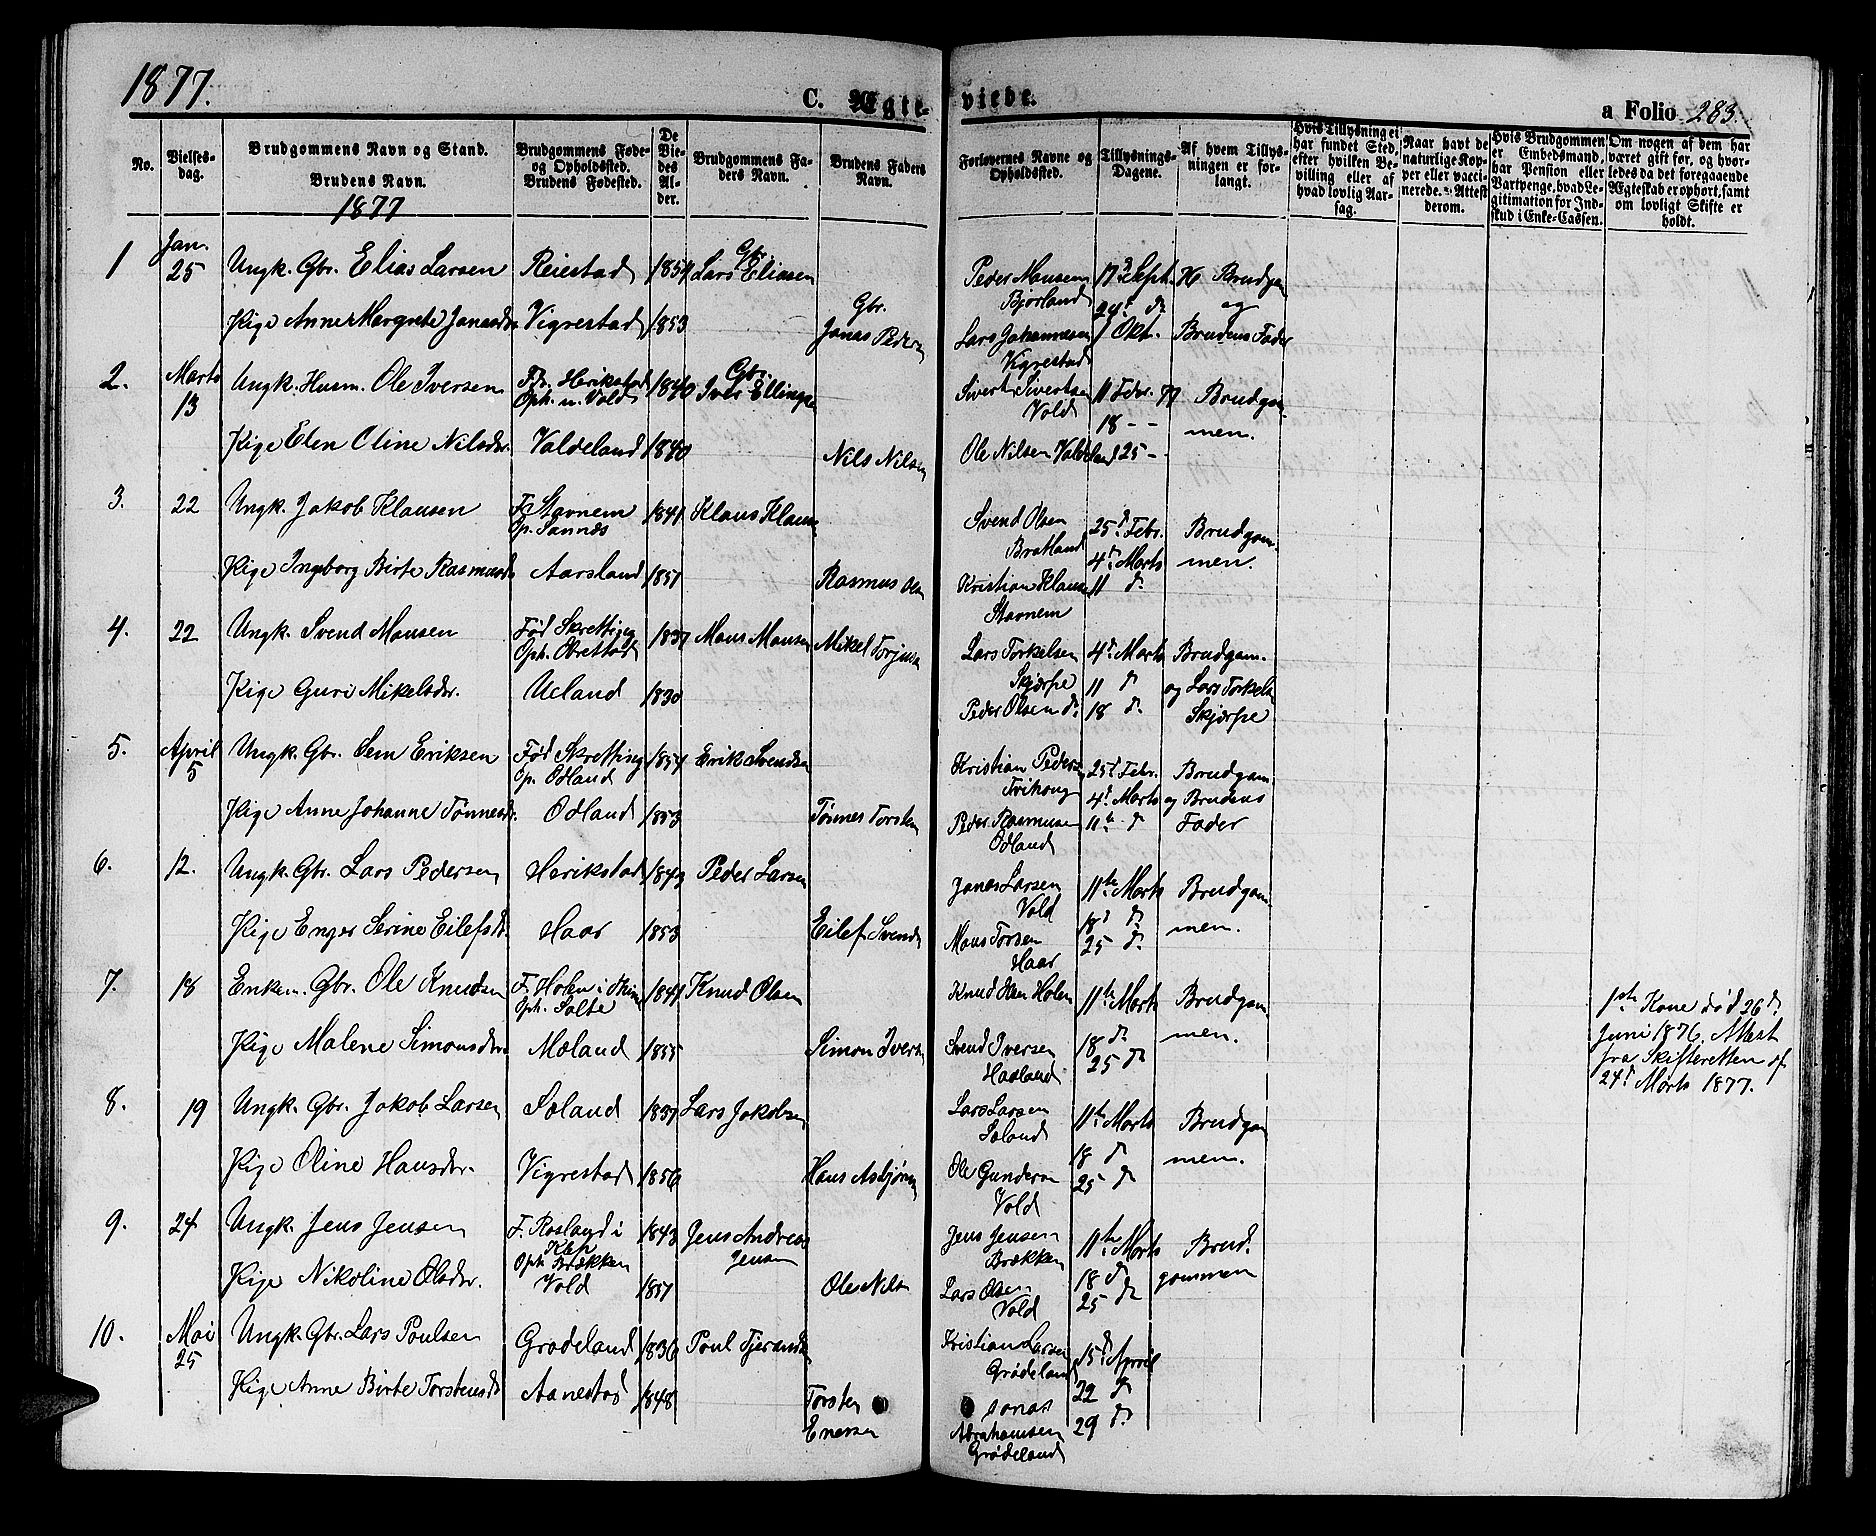 1877.
C. Ægte-
viede.
a Folio 283.
No.
Vielses-
dag.
Brudgommens Navn og Stand.
Brudens Navn.
Brudgommens Føde-
og Opholdssted.
Brudens Fødested.
De
Vie-
des
Al-
der.
Brudgommens Fa-
ders Navn.
Brudens Faders
Navn.
Forlovernes Navne og
Opholdssted.
Tillysnings-
Dagene.
Af hvem Tillys-
ningen er for-
langt.
Hvis Tillysning ei
har fundet Sted,
efter hvilken Be-
villing eller af
hvad lovlig Aar-
sag.
Naar havt de
naturlige Kop-
per eller vacci-
nerede. Attest
derom.
Hvis Brudgommen
er Embedsmand,
har Pension eller
Vartpenge, hvad Le-
gitimation for Ind-
skud i Enke-Cassen.
Om nogen af dem har
været gift før, og hvor-
ledes da det foregaaende
Ægteskab er ophørt, samt
om lovligt Skifte er
holdt.
1877
1
Jan.
25
Ungk. Gbr. Elias Larsen
Reiestad
1854
Gbr.
Lars Eliasen
Peder Mausen
Bjorland
17 Sept. 76
Brudgom
og
Pige Anne Margrete Jonasdr.
Vigrestad
1853
Gbr.
Jonas Pedersen
Lars Johannesen
Vigrestad
24 d.
1 Okt.
Brudens Fader
2.
Marts
13
Ungk. Husm. Ole Iversen
Fd. Herikstad
Oph. u. Vold
1840
Gbr.
Iver Ellingsen
Sivert Sivertsen
Vold
11 Febr. 77
Brudgom-
men.
Pige Elen Oline Nilsdr.
Valdeland
1840
Nils Nilsen
Ole Nilsen Valdeland
18 - -
25 -
3.
22
Ungk. Jakob Klausen
F. Stavnem
Op. Sannæs
1841
Klaus Klausen
Svend Olsen
Bratland
25d Febr.
Brudgom-
men.
Pige Ingeborg Birte Rasmusdr.
Aarsland
1851
Rasmus Olsen
Kristian Klausen
Stavnem
4d Marts
11 d.
4.
22
Ungk. Svend Mausen
Fød Skretting
Oph. Obrestad
1837
Maus Mausen
Mikel Torjusen
Lars Torkelsen
Skjærpe
4d Marts
Brudgom.
og Lars Torkelsen
Skjærpe
Pige Guri Mikelsdr.
Ueland
1830
Peder Olsen d.
11 d
18 d.
5.
April
5
Ungk. Gbr. Sem Eriksen
Fød Skretting
Op. Odland
1854
Erik Svendsen
Kristian Pedersen
25d Febr.
Brudgom.
og Brudens
Fader
Pige Anne Johanne Tønnesdr.
Odland
1853
Tønnes Torsten
Peder Rasmusen
Odland
4d Marts
11te d
6.
12.
Ungk. Gbr. Lars Pedersen
Herikstad
1849
Peder Larsen
Jonas Larsen
Vold
11te Marts
Brudgom-
men.
Pige Enger Serine Eilefsdr.
Haar
1853
Eilef Svends
Maus Torsen
Haar
18d d.
25 d.
7.
18
Enkem. Gbr. Ole Knudsen
F. Holen i Thime
Oph. Salte
1841
Knud Olsen
Knud Olsen Holen
11te Marts
Brudgom
men.
1ste Kone død 26 d.
Juni 1876. Attest
fra Skifteretten af
24d Marts 1877.
Pige Malene Simonsdr.
Moland
1855
Simon Iversen
Svend Iversen
Haaland
18 d.
25 d
8.
19
Ungk. Gbr. Jakob Larsen
Søland
1857
Lars Jakobsen
Lars Larsen
Søland
11te Marts
Brudgom
men.
Pige Oline Hansdr.
Vigrestad
1856
Hans Asbjørnsen
Ole Gundersen
Vold
18 d
25 d
9.
24
Ungk. Jens Jensen
F. Rosland i
Klep
Oph. Brækken
1843
Jens Andreas
Jensen
Jens Jensen
Brækken
11te Marts
Brud-
gommen
Pige Nikoline Olsdr.
Vold
1857
Ole Nilsen
Lars Olsen
Vold
18 d
25 d
10.
Mai
25
Ungk. Gbr. Lars Poulsen
Grødeland
1836
Poul Tjerandsen
Kristian Larsen
Grødeland
15d April
Pige Anne Birte Torstensdr.
Aanestad
1848
Torsten
Enersen
Jonas
Abrahamsen
Grødeland
22 d
29 d.